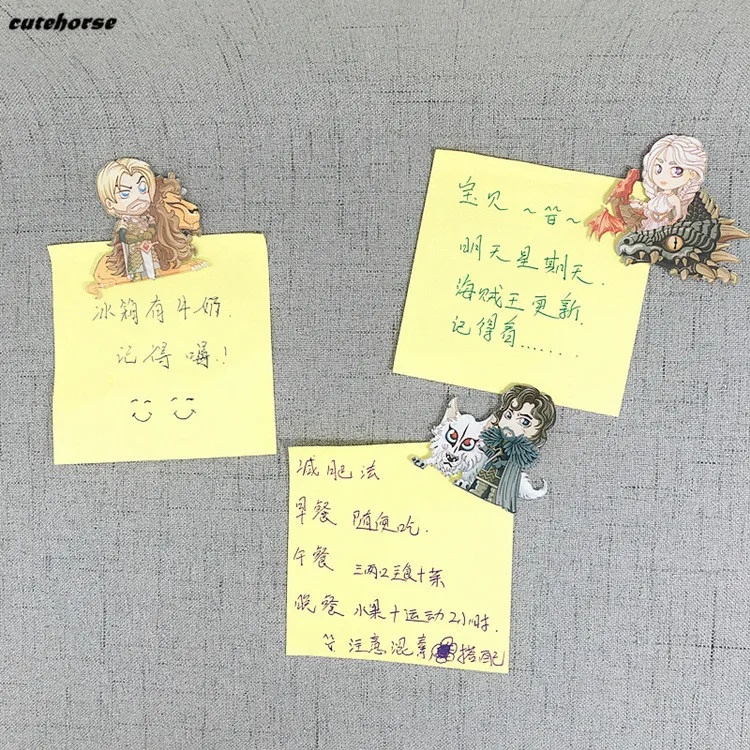 cutehorse
冰箱有牛奶.
记得喝!
宝贝~
明天星期天.
海贼王更新.
记得看.......
减肥法
早餐 随便吃.
午餐 三两口主食+菜
晚餐 水果+运动2小时.
注意混素搭配